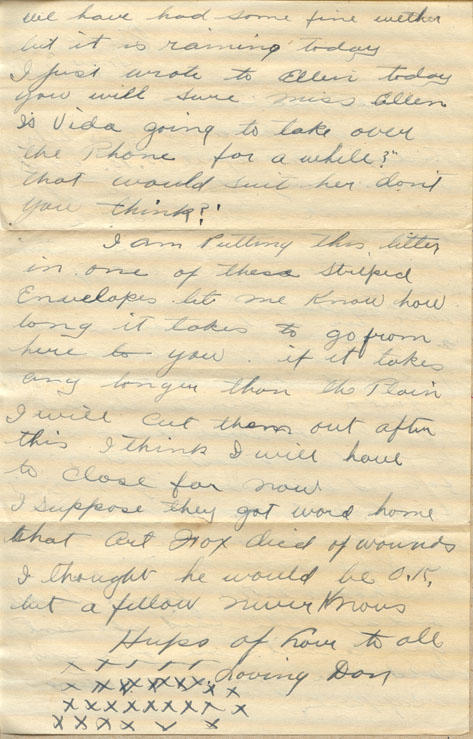 we have had some fine wether
but it is raining today
I just wrote to Ellen today
you will sure miss Ellen
Is Vida going to take over
the Phone for a while?"
that would suit her don't
you think?'
I am Putting this litter
in one of these Striped
Envelopes let me Know how
long it takes to go from
here to you. if it takes
any longer than the Plain
I will cut them out after
this I think I will have
to close for now
I suppose they got word home
that Art Fox died of wounds
I thought he would be O.K,
but a fellow never Knows
Heaps of Love to all
x x x x x x Loving Don
x x x x x x x x x x
x x x x x x x x x
x x x x x x